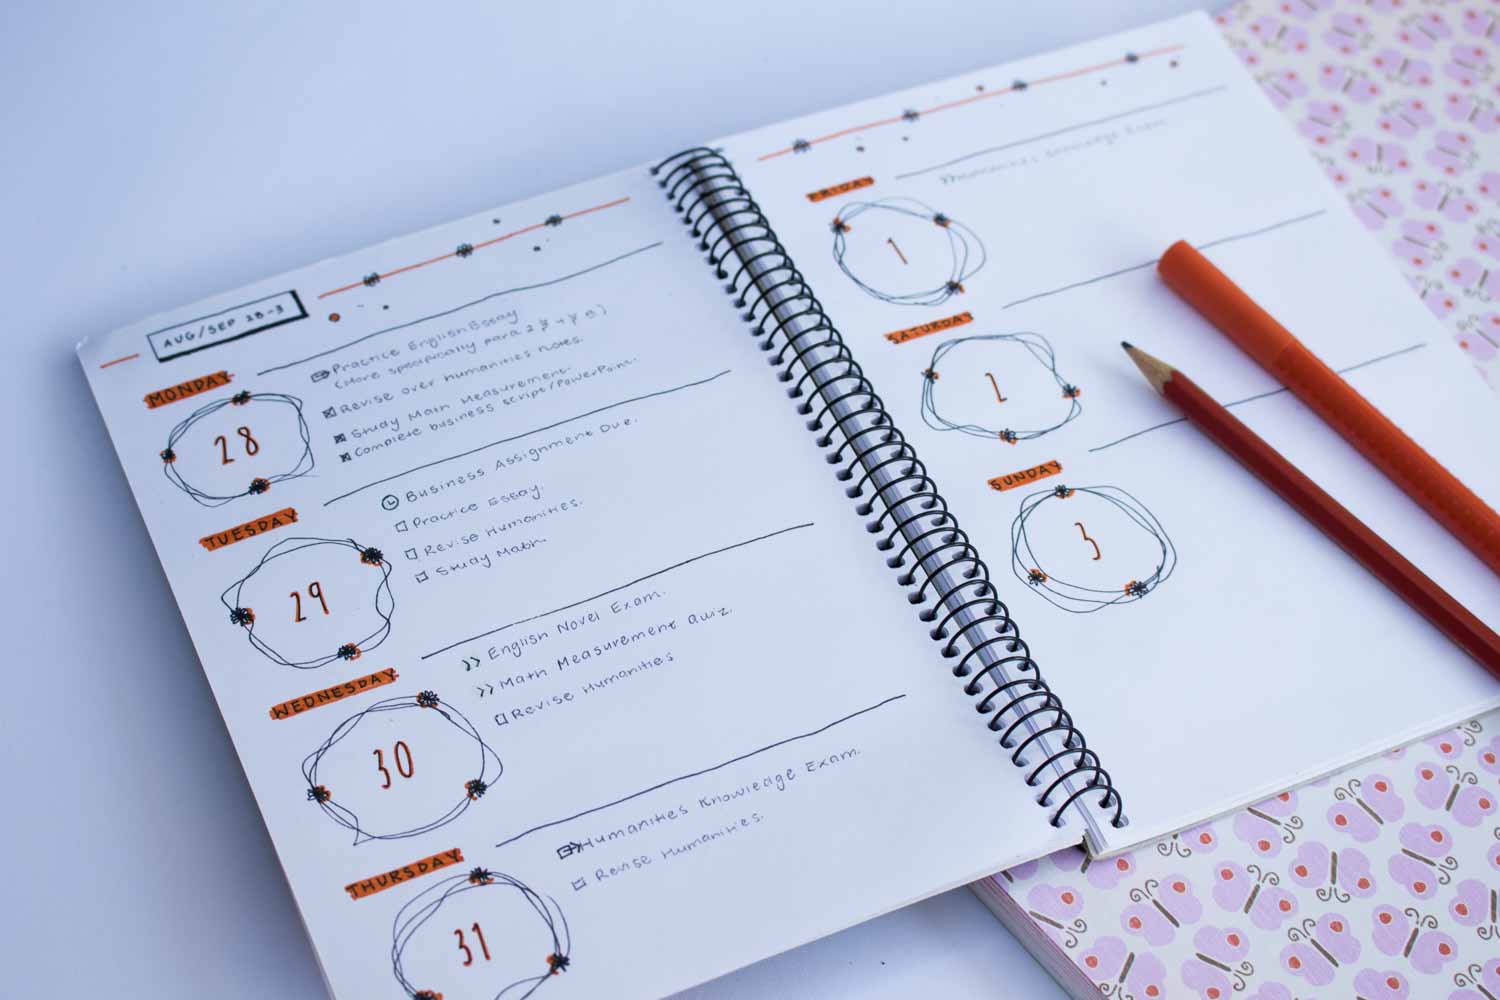 AUG/SEP 28-3
MONDAY
28
Practice English Essay
(More specifically para 2
Revise over humanities notes.
Study Math Measurement.
Complete business script/PowerPoint.
TUESDAY
29
Business Assignment Due.
Practice Essay.
Revise Humanities.
Study Math
WEDNESDAY
30
>> English Novel Exam.
>> Math Measurement quiz.
Revise Humanities
THURSDAY
31
Humanities Knowledge Exam.
Revise Humanities.
FRIDAY
1
Humanities Knowledge Exam
SATURDAY
2
SUNDAY
3